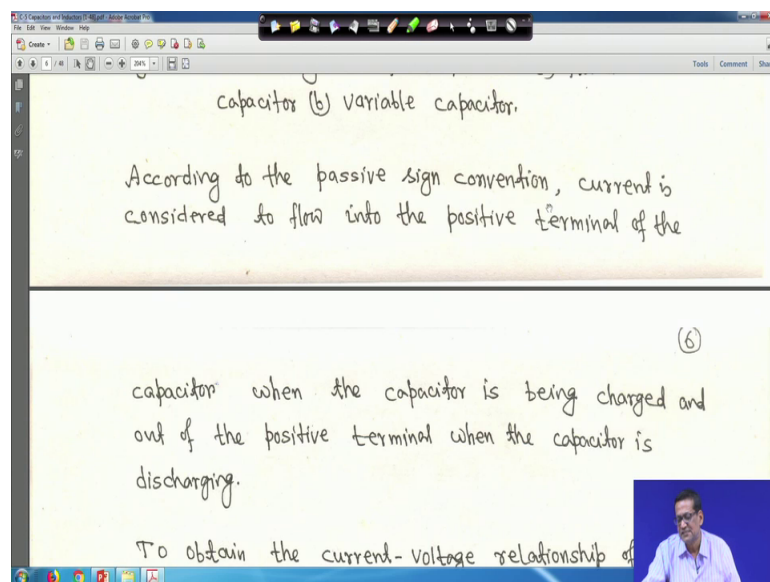 C-3 Capacitors and Inductors (1-48).pdf - Adobe Acrobat Pro
File Edit View Window Help
Create
6 / 48 204% Tools Comment
capacitor (b) variable capacitor.
According to the passive sign convention, current is
considered to flow into the positive terminal of the
6
capacitor when the capacitor is being charged and
out of the positive terminal when the capacitor is
discharging.
To obtain the current-voltage relationship of